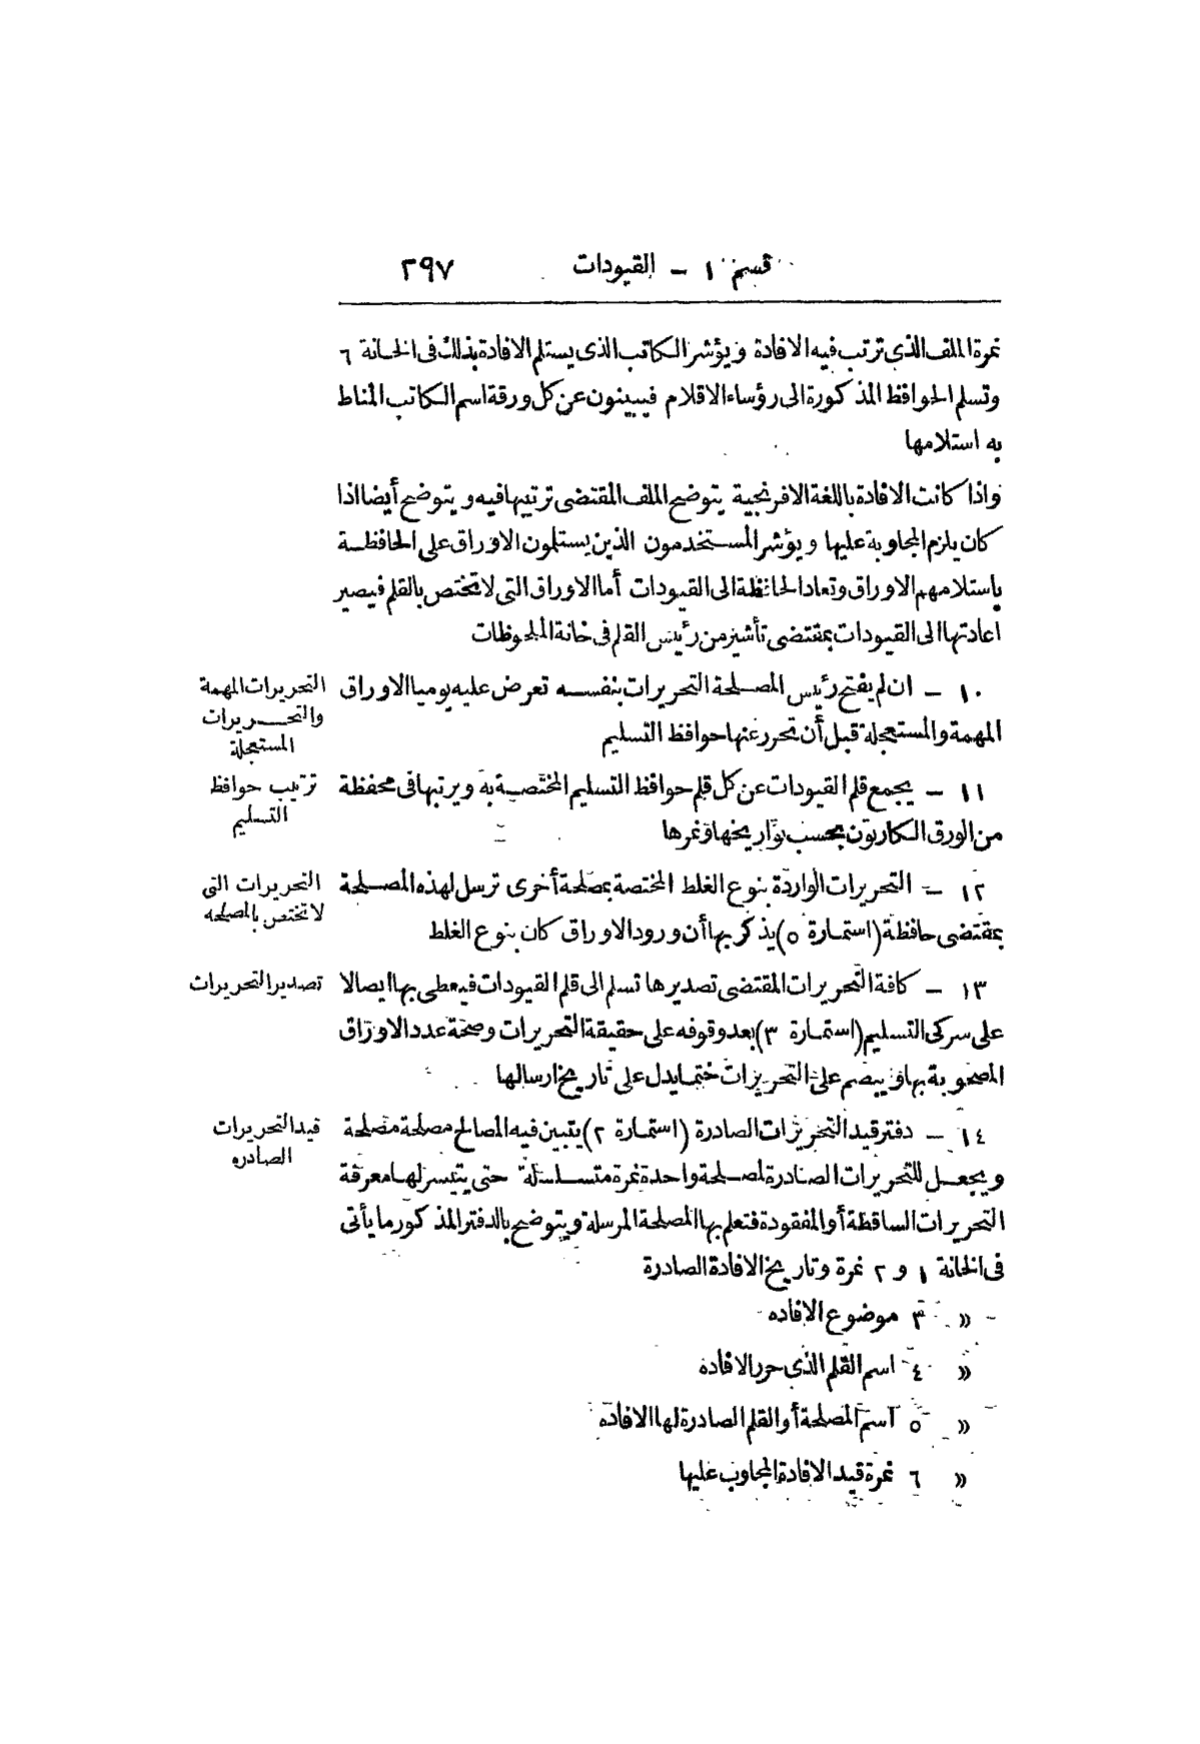 قسم ١ — القيودات ٢٩٧
نمرة الملف الذى ترتب فيه الافادة ويؤشر الكاتب الذى يستلم الافادة بذلك فى الخانة ٦
وتسلم الحوافظ المذكورة الى رؤساء الاقلام فيبينون عن كل ورقة اسم الكاتب المناط
به استلامها
واذا كانت الافادة باللغة الافرنجية يتوضح الملف المقتضى ترتيبها فيه ويتوضح أيضا اذا
كان يلزم المجاوبة عليها ويؤشر المستخدمون الذين يستلمون الاوراق على الحافظة
باستلامهم الاوراق وتعاد الحافظة الى القيودات أما الاوراق التى لا تختص بالقلم فيصير
اعادتها الى القيودات بمقتضى تأشير من رئيس القلم فى خانة الملحوظات
التحريرات المهمة
والتحريرات
المستعجلة
١٠ — ان لم يفتح رئيس المصلحة التحريرات بنفسه تعرض عليه يوميا الاوراق
المهمة والمستعجلة قبل أن تحرر عنها حوافظ التسليم
ترتيب حوافظ
التسليم
١١ — يجمع قلم القيودات عن كل قلم حوافظ التسليم المختصة به ويرتبها فى محفظة
من الورق الكارتون بحسب تواريخها ونمرها
التحريرات التى
لا تختص بالمصلحه
١٢ — التحريرات الواردة بنوع الغلط المختصة بمصلحة أخرى ترسل لهذه المصلحة
بمقتضى حافظة (استمارة ٥) يذكر بها أن ورود الاوراق كان بنوع الغلط
تصدير التحريرات
١٣ — كافة التحريرات المقتضى تصديرها تسلم الى قلم القيودات فيعطى بها ايصالا
على سركى التسليم (استمارة ٣) بعد وقوفه على حقيقة التحريرات وصحة عدد الاوراق
المصحوبة بها ويبصم على التحريرات ختما يدل على تاريخ ارسالها
قيد التحريرات
الصادره
١٤ — دفتر قيد التحريرات الصادرة (استمارة ٢) يتبين فيه المصالح مصلحة مصلحة
ويجعل للتحريرات الصادرة لمصلحة واحدة نمرة متسلسلة حتى يتيسر لها معرفة
التحريرات الساقطة أو المفقودة فتعلم بها المصلحة المرسلة ويتوضح بالدفتر المذكور ما يأتى
فى الخانة ١ و ٢ نمرة وتاريخ الافادة الصادرة
« ٣ موضوع الافاده
« ٤ اسم القلم الذى حرر الافاده
« ٥ اسم المصلحة أو القلم الصادرة لها الافاده
« ٦ نمرة قيد الافادة المجاوب عليها